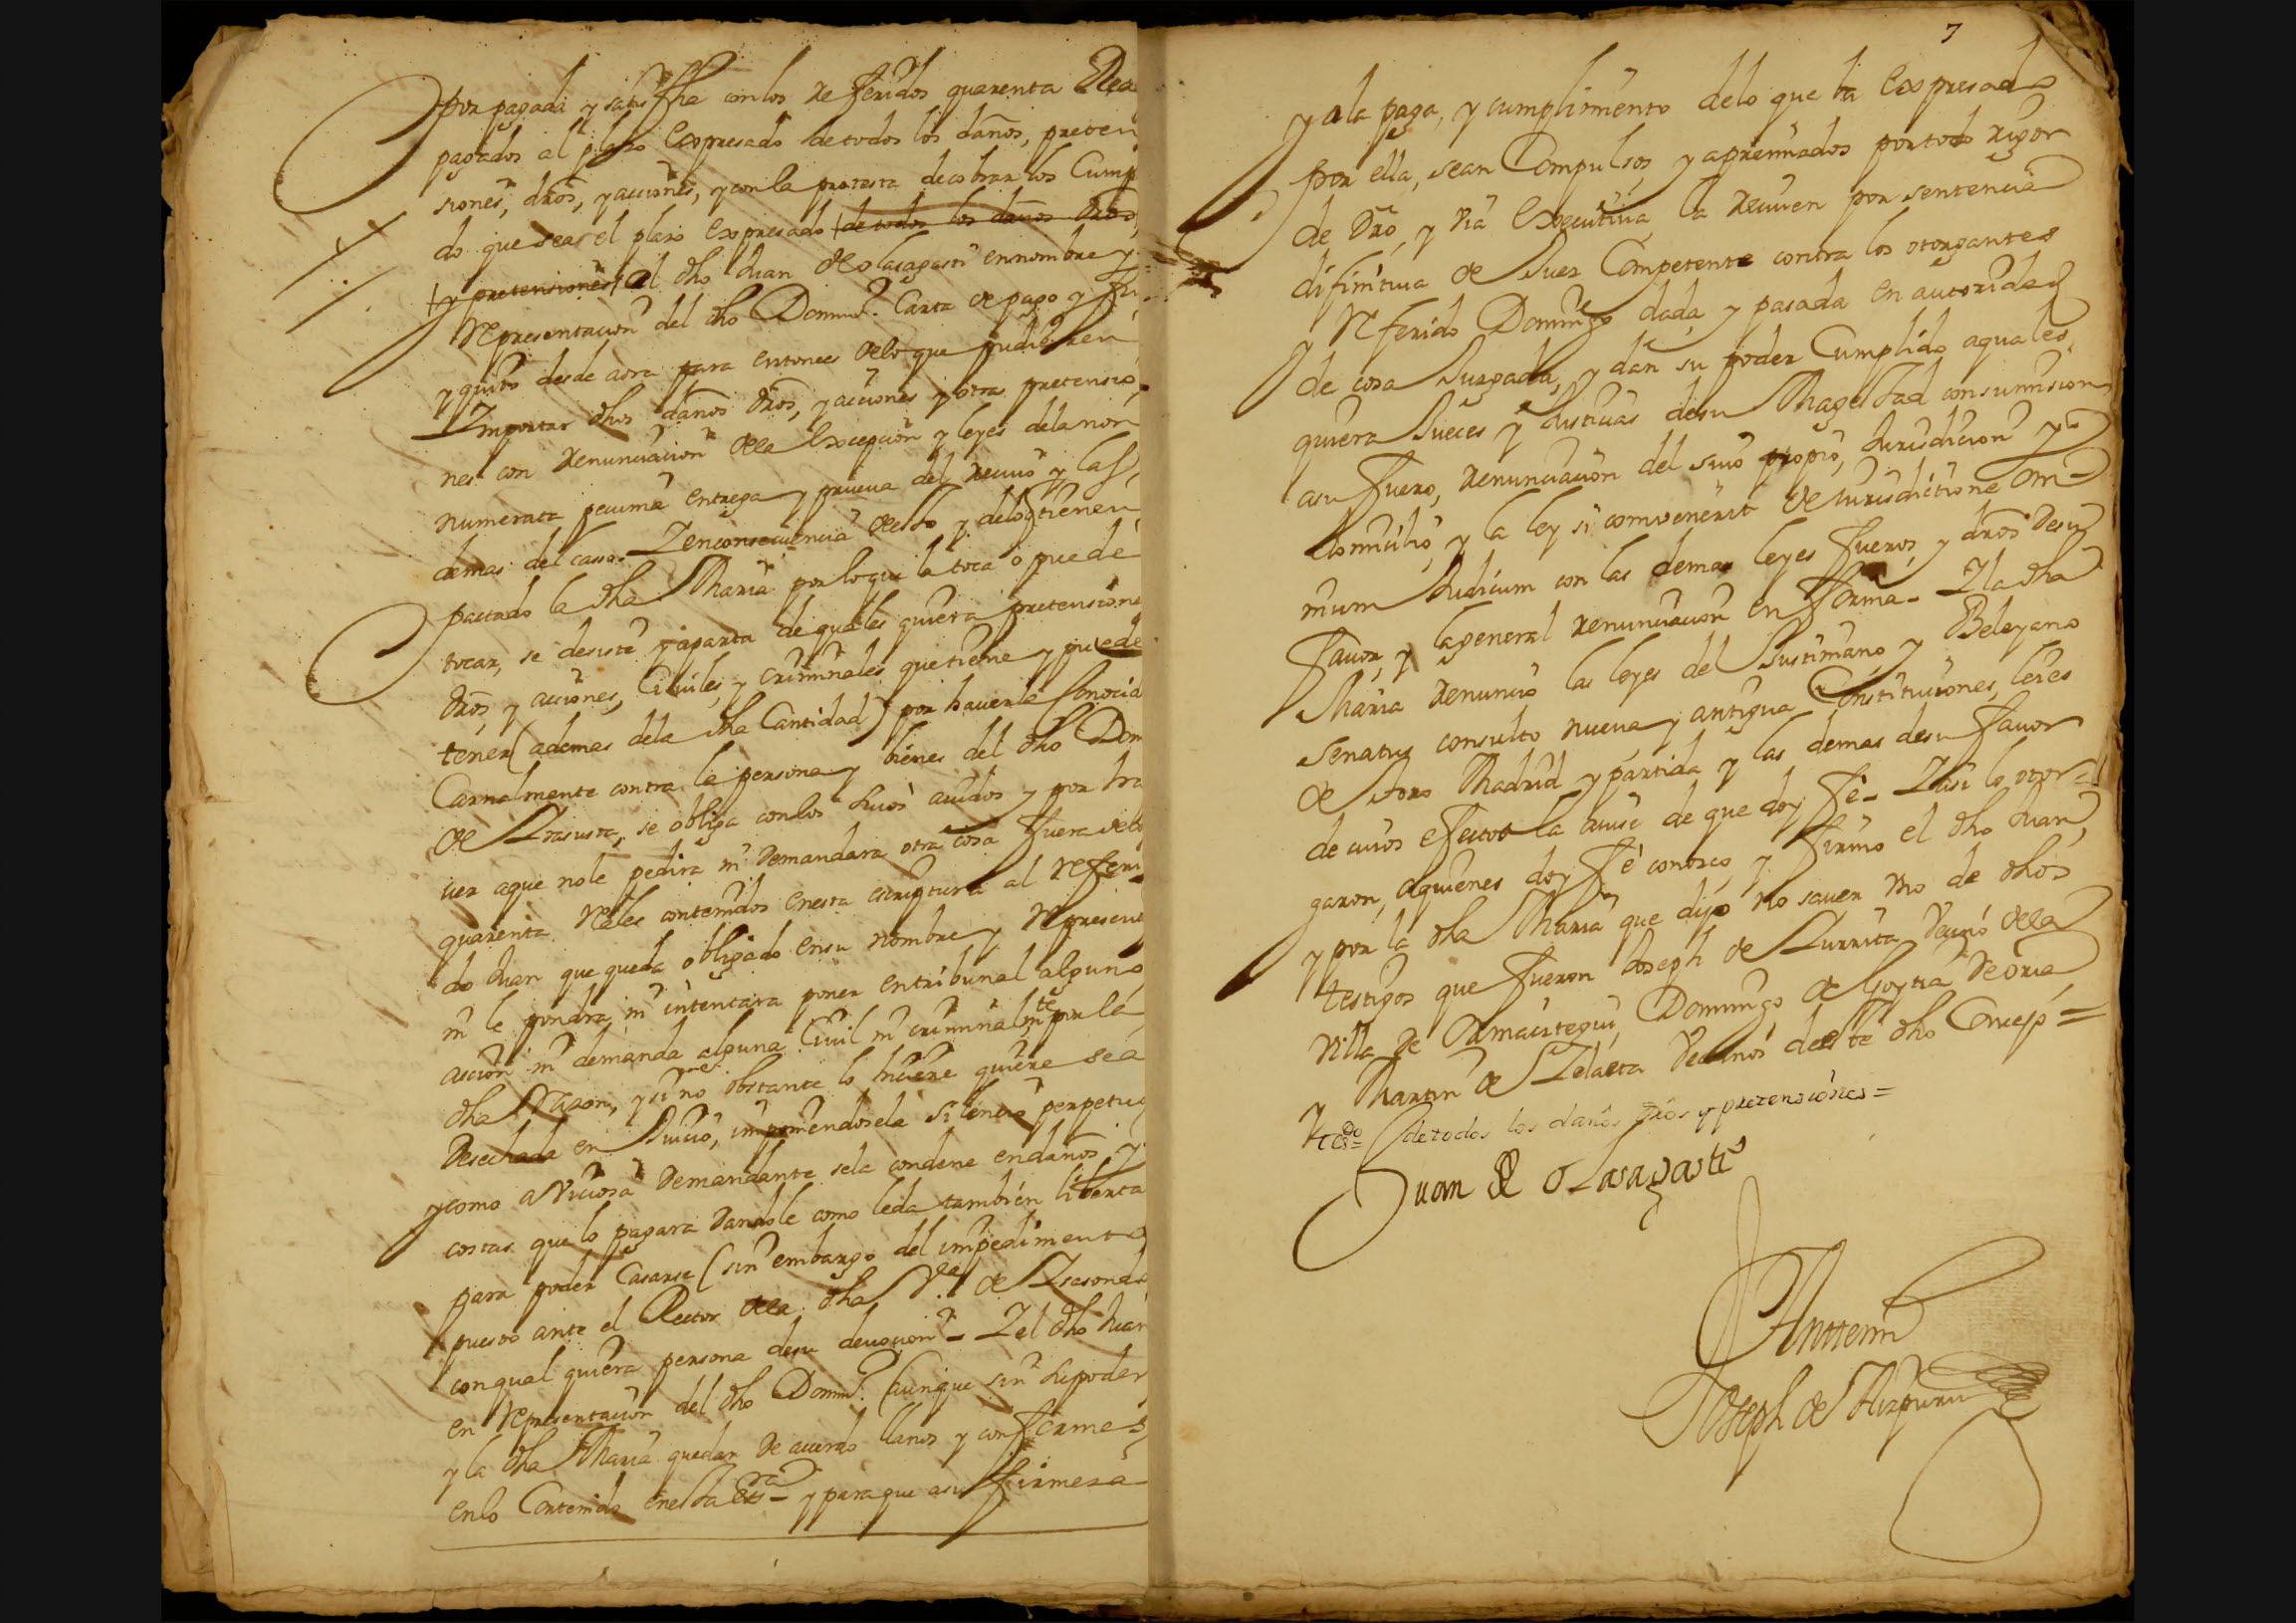 por pagada y satisfha con los referidos quarenta Rea
pagados al plazo expresado de todos los daños, preten
siones, dros, y acciones, y con la protesta de cobrar los Cumpli
do que sea el plazo expresado (de todos los daños dros,
y pretensiones) al dho Juan de olasagasti en nombre y
representacion del dho Doming.º Carta de pago y fin
y quito desde aora para entonces de lo que pudieren
Importar dhos daños dros, y acciones y otras pretensio
nes con renunciacion de la excepcion y leyes de la non
numerata pecunia entrega y prueva del reciuo y las
demas del casso. Y en consecuencia de esto y de lo q tienen
pactado la dha Maria por lo que la toca o puede
tocar, se desiste y aparta de quales quiera pretensione
dros y acciones, Ciuiles, y criminales que tiene y puede
tener (ademas de la dha Cantidad) por hauerla Conocid
Carnalmente contra la persona y bienes del dho Dom
de Irasusta, se obliga con los suios auidos y por ha
uer a que no le pedira ni demandara otra cosa fuera de los
quarenta reales contenidos en esta escriptura al referi
do Juan que queda obligado en su nombre y represent
ni le pondra ni intentara poner en tribunal alguno
accion ni demanda alguna Ciuil ni criminalmte por la
dha razon, y si no obstante lo hiciere quiere sea
desechada en Juicio, imponiendosela silencio perpetuo
y como a viciosa demandante sela condene en daños y
costas que lo pagara dandole como le da tambien liberta
para poder Casarse (sin embargo del impedimento
puesto ante el Rector de la dha V.ª de Isasondo
con qual quiera persona de su deuocion. Y el dho Juan
en representacion del dho Doming.º (aunque sin su poder
y la dha Maria quedan de acuerdo llanos y conformes,
en lo Contenido en esta essra y para que a su firmeza
7
y a la paga, y cumplimiento de lo que ba expresado
por ella, sean Compulsos y apremiados por todo rigor
de Dro, y via executiua la reciuen por sentencia
difinitiua de Juez Competente contra los otorgantes
y referido Domingo dada y pasada en autoridad
de cosa Juzgada, y dan su poder Cumplido a quales
quiera Jueces y Justicias de su Magestad con sumision
a su fuero, renunciacion del suio propio, Jurisdicion y
domicilio, y la ley si convenerit de Jurisdictione om=
nium Judicum con las demas leyes fueros y dros de su
fauor, y la general renunciacion en forma. Y la dha
Maria renuncio las leyes del Justiniano y Beleyano
Senatus consulto nueua y antigua Constituciones, leies
de toro Madrid y partida y las demas de su fauor
de cuios efectos la auise de que doy fe. Y asi lo otor=
garon, a quienes doy fe conozco, y firmo el dho Juan,
y por la dha Maria que dijo no sauer vno de dhos
testigos que fueron Joseph de Iurrita vecino de la
villa de Ormaiztegui Domingo de Goytia de oria
y Martin de Zelaeta vecinos de este dho Concejo=
Tesdo (de todos los daños dros y pretensiones=
Juan de olasagasti
Antemi
Joseph de Aizpuru